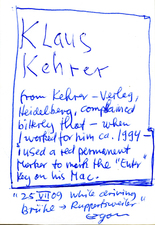 Klaus
Kehrer
from Kehrer-Verlag,
Heidelberg, complained
bitterly that – when
I worked for him ca. 1994 –
I used a red permanent
Marker to mark the "Enter"
key on his Mac.
"25 VII 09 while driving
Brühe → Ruppertsweiler"